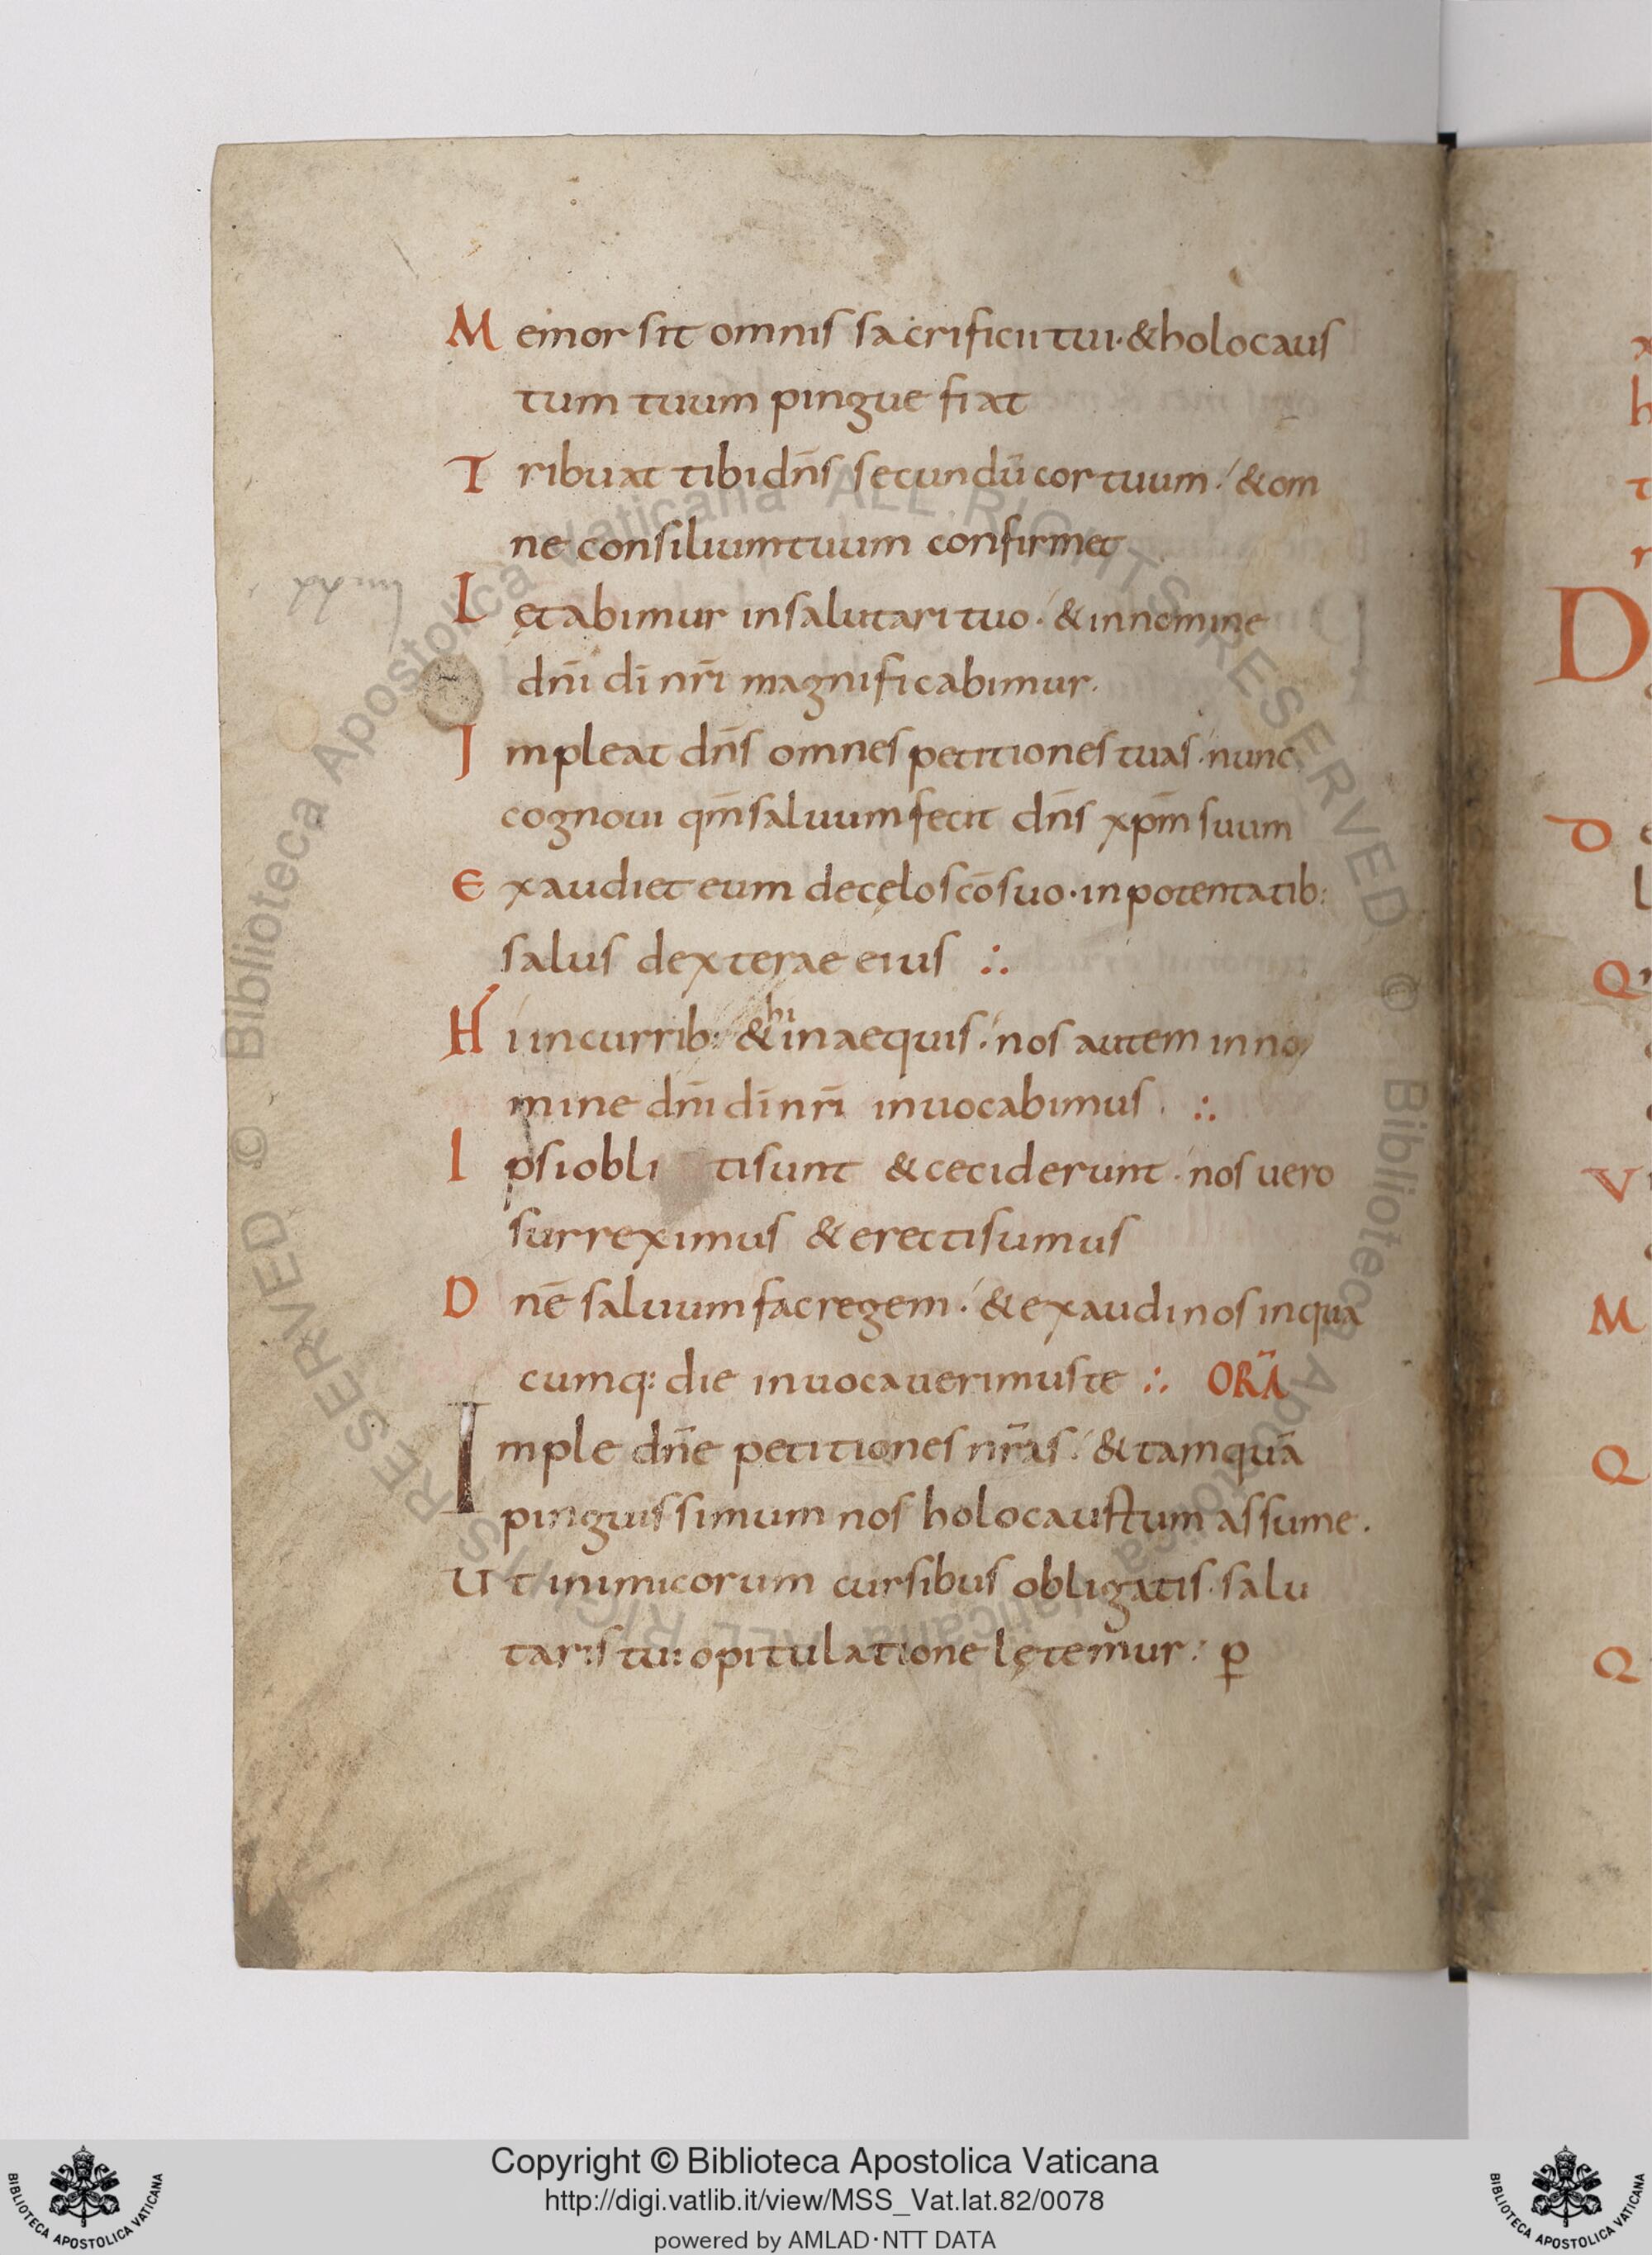 Memor sit omnis sacrificii tui · & holocaus
tum tuum pingue fiat
Tribuat tibi dn̄s secundū cor tuum · & om
ne consilium tuum confirmet
Lętabimur in salutari tuo · & in nomine
dn̄i dī nr̄i magnificabimur ·
Impleat dn̄s omnes petitiones tuas · nunc
cognoui qm̄ saluum fecit dn̄s xpm̄ suum
Exaudiet eum de cęlo scō suo · in potentatib:
salus dexterae eius ∴
Hi in currib: & hi in aequis · nos autem in no
mine dn̄i dī nr̄i inuocabimus · ∴
Ipsi obli ti sunt & ceciderunt · nos uero
surreximus & erecti sumus
Dnē saluum fac regem · & exaudi nos in qua
cumq: die inuocauerimus te ∴ ORA̅
Imple dn̄e petitiones nr̄as · & tamquā
pinguissimum nos holocaustum assume ·
Ut inimicorum cursibus obligatis · salu
taris tui opitulatione lętemur : p̱
D
Copyright © Biblioteca Apostolica Vaticana
http://digi.vatlib.it/view/MSS_Vat.lat.82/0078
powered by AMLAD·NTT DATA
BIBLIOTECA APOSTOLICA VATICANA
BIBLIOTECA APOSTOLICA VATICANA
© Biblioteca Apostolica Vaticana ALL RIGHTS RESERVED © Biblioteca Apostolica Vaticana ALL RIGHTS RESERVED